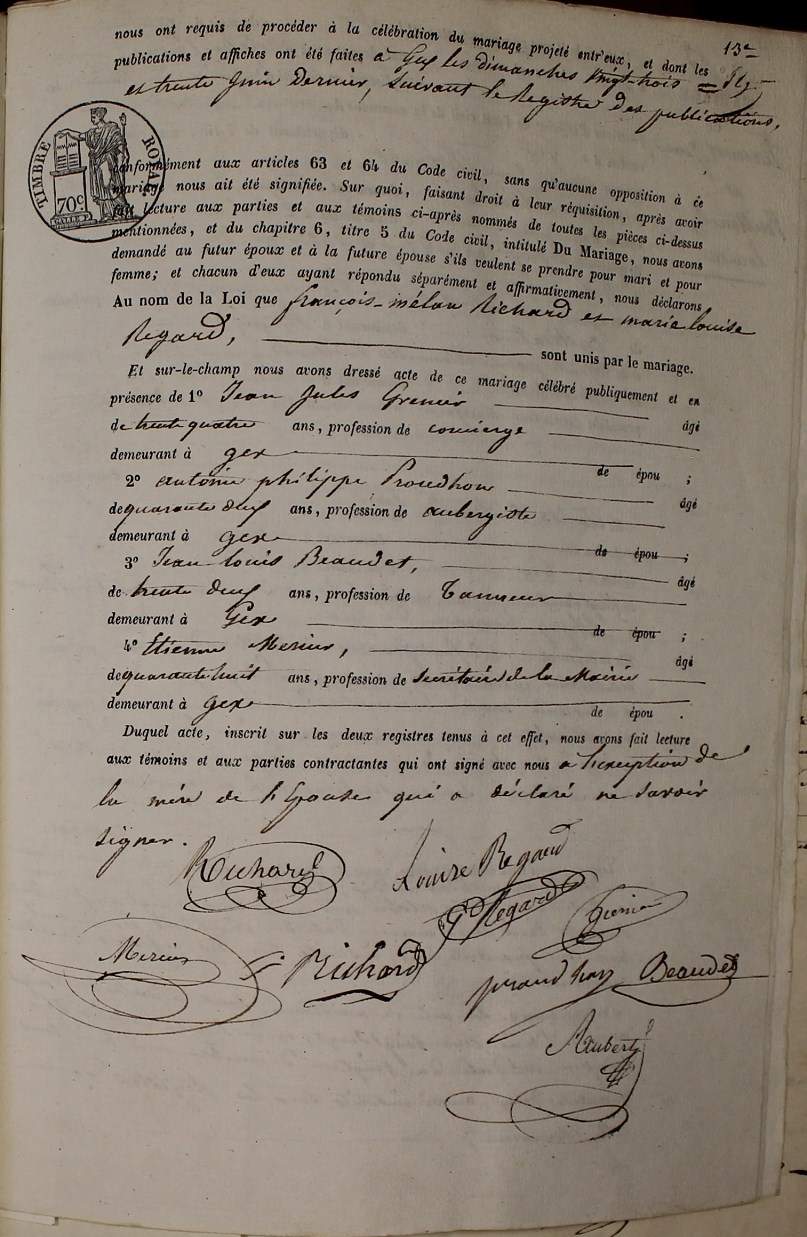 13e
nous ont requis de procéder à la célébration du mariage projeté entr'eux, et dont les
publications et affiches ont été faites à Gex les dimanches vingt-trois
et trente Juin Dernier, suivant le Registre des publications,
TIMBRE ROYAL
70c
conformément aux articles 63 et 64 du Code civil, sans qu'aucune opposition à ce
mariage nous ait été signifiée. Sur quoi, faisant droit à leur réquisition, après avoir
fait lecture aux parties et aux témoins ci-après nommés de toutes les pièces ci-dessus
mentionnées, et du chapitre 6, titre 5 du Code civil, intitulé Du Mariage, nous avons
demandé au futur époux et à la future épouse s'ils veulent se prendre pour mari et pour
femme; et chacun d'eux ayant répondu séparément et affirmativement, nous déclarons
Au nom de la Loi que françois-mélan Richard et marie louise
Regard, sont unis par le mariage.
Et sur-le-champ nous avons dressé acte de ce mariage célébré publiquement et en
présence de 1º Jean Jules Grenier âgé
de trente quatre ans, profession de concierge
demeurant à gex de épou ;
2º antoine philippe Proudhon âgé
de quarante deux ans, profession de aubergiste
demeurant à gex de épou ;
3º Jean Louis Beaudet, âgé
de trente deux ans, profession de Tanneur
demeurant à Gex de épou ;
4º Etienne Merier, âgé
de quarante huit ans, profession de secrétaire de la Mairie
demeurant à gex de épou .
Duquel acte, inscrit sur les deux registres tenus à cet effet, nous avons fait lecture
aux témoins et aux parties contractantes qui ont signé avec nous à l'exception de
la mère de l'Epouse qui a déclaré ne savoir
signer.
Richard Louise Regard
Gd Regard Grenier
Merier Richard proudhon Beaudet
Aubert